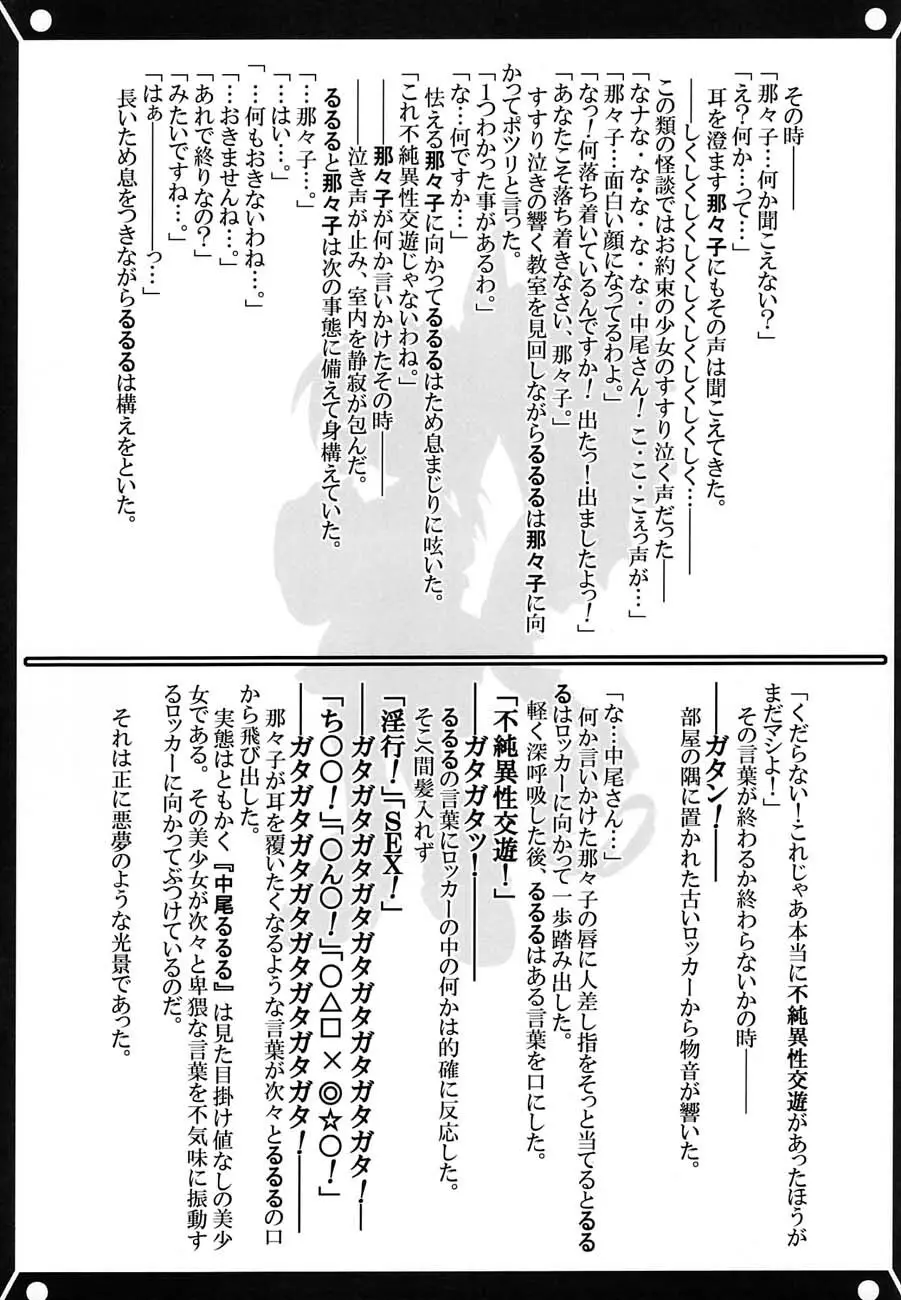 その時――
「那々子…何か聞こえない？」
「え？何か…って…」
耳を澄ます那々子にもその声は聞こえてきた。
――しくしくしくしくしくしくしくしく…――
この類の怪談ではお約束の少女のすすり泣く声だった――
「なナな・な・な・な・な・中尾さん！こ・こ・こぇっ声が…」
「那々子…面白い顔になってるわよ。」
「なっ！何落ち着いているんですか！出たっ！出ましたよっ！」
「あなたこそ落ち着きなさい、那々子。」
すすり泣きの響く教室を見回しながらるるるは那々子に向
かってポツリと言った。
「１つわかった事があるわ。」
「な…何ですか…」
怯える那々子に向かってるるるはため息まじりに呟いた。
「これ不純異性交遊じゃないわね。」
――那々子が何か言いかけたその時――
――泣き声が止み、室内を静寂が包んだ。
るるると那々子は次の事態に備えて身構えていた。
「…那々子…。」
「…はい…。」
「…何もおきないわね…。」
「…おきませんね…。」
「あれで終りなの？」
「みたいですね…。」
「はぁ――――っ…」
長いため息をつきながらるるるは構えをといた。
「くだらない！これじゃあ本当に不純異性交遊があったほうが
まだマシよ！」
その言葉が終わるか終わらないかの時――
――ガタン！――
部屋の隅に置かれた古いロッカーから物音が響いた。
「な…中尾さん…」
何か言いかけた那々子の唇に人差し指をそっと当てるとるる
るはロッカーに向かって一歩踏み出した。
軽く深呼吸した後、るるるはある言葉を口にした。
「不純異性交遊！」
――ガタガタッ！――
るるるの言葉にロッカーの中の何かは的確に反応した。
そこへ間髪入れず
「淫行！」「SEX！」
――ガタガタガタガタガタガタガタガタガタ！――
「ち○○！」「○ん○！」「○△□×◎☆○！」
――ガタガタガタガタガタガタガタガタ！――
那々子が耳を覆いたくなるような言葉が次々とるるるの口
から飛び出した。
実態はともかく『中尾るるる』は見た目掛け値なしの美少
女である。その美少女が次々と卑猥な言葉を不気味に振動す
るロッカーに向かってぶつけているのだ。
それは正に悪夢のような光景であった。